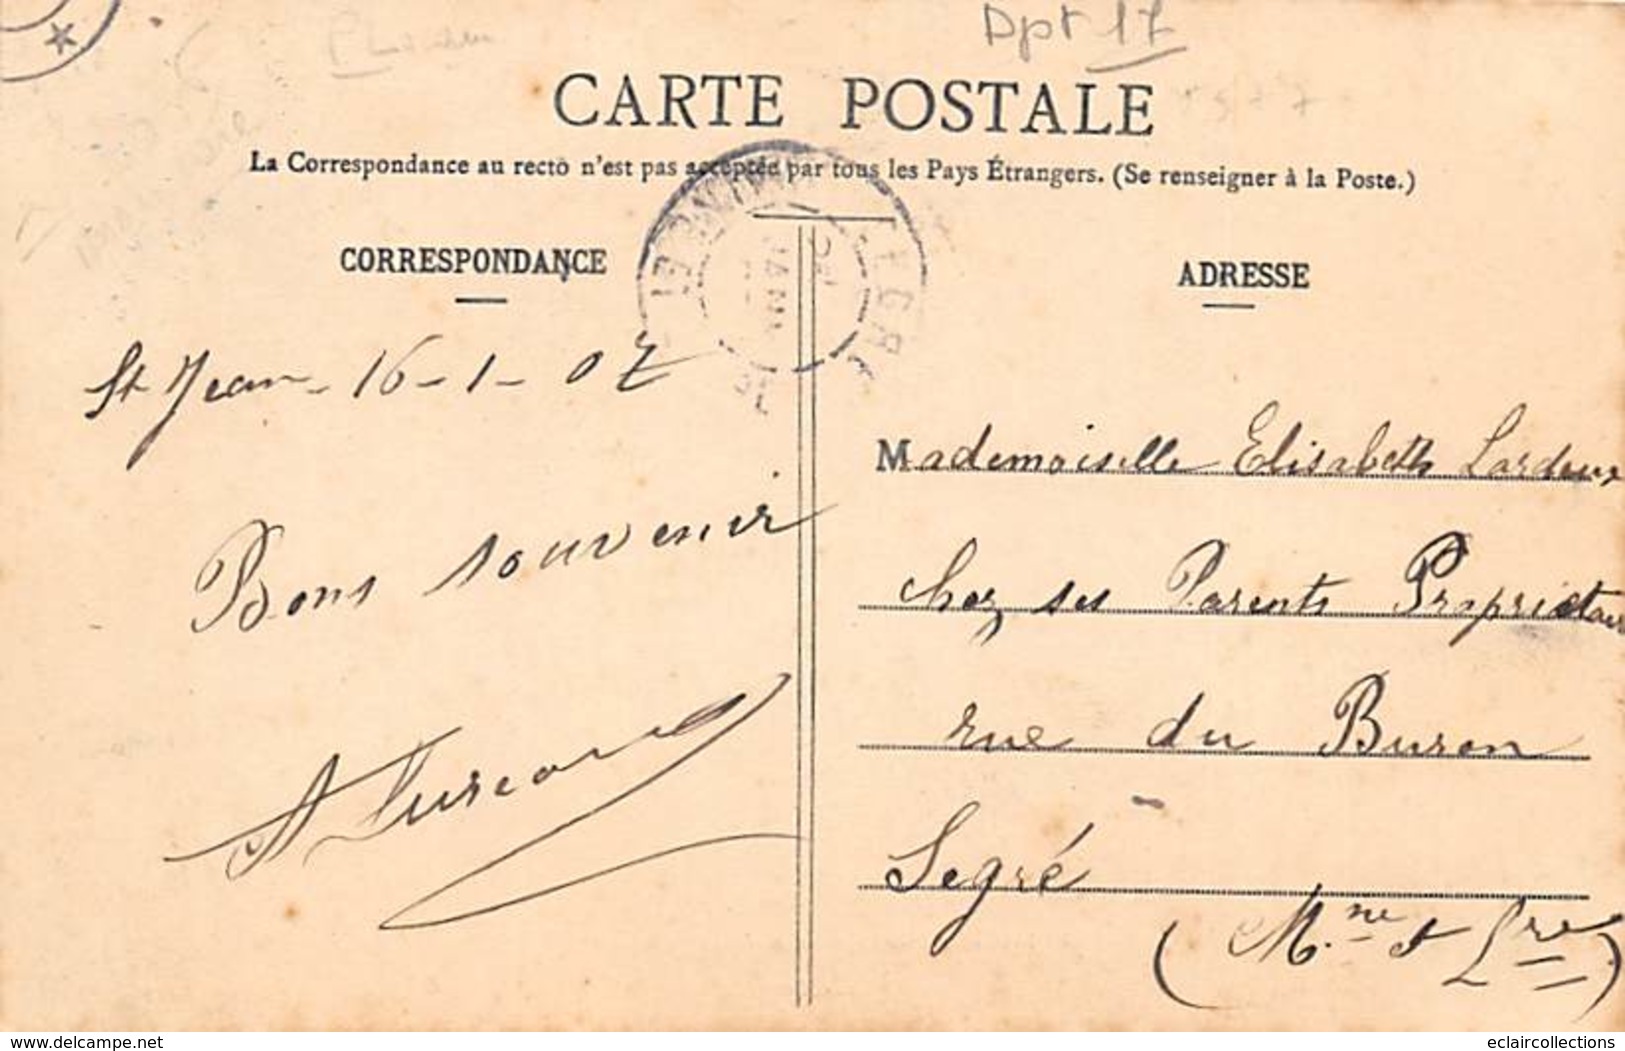 Dpt 17
CARTE POSTALE
La Correspondance au recto n'est pas acceptée par tous les Pays Étrangers. (Se renseigner à la Poste.)
CORRESPONDANCE
ADRESSE
St Jean - 16 - 1 - 07
Bons souvenir
Mademoiselle Elisabeth Lardeux
chez ses Parents Propriétaire
rue du Buron
Segré
(M.ne et Lre)
www.delcampe.net
eclaircollections